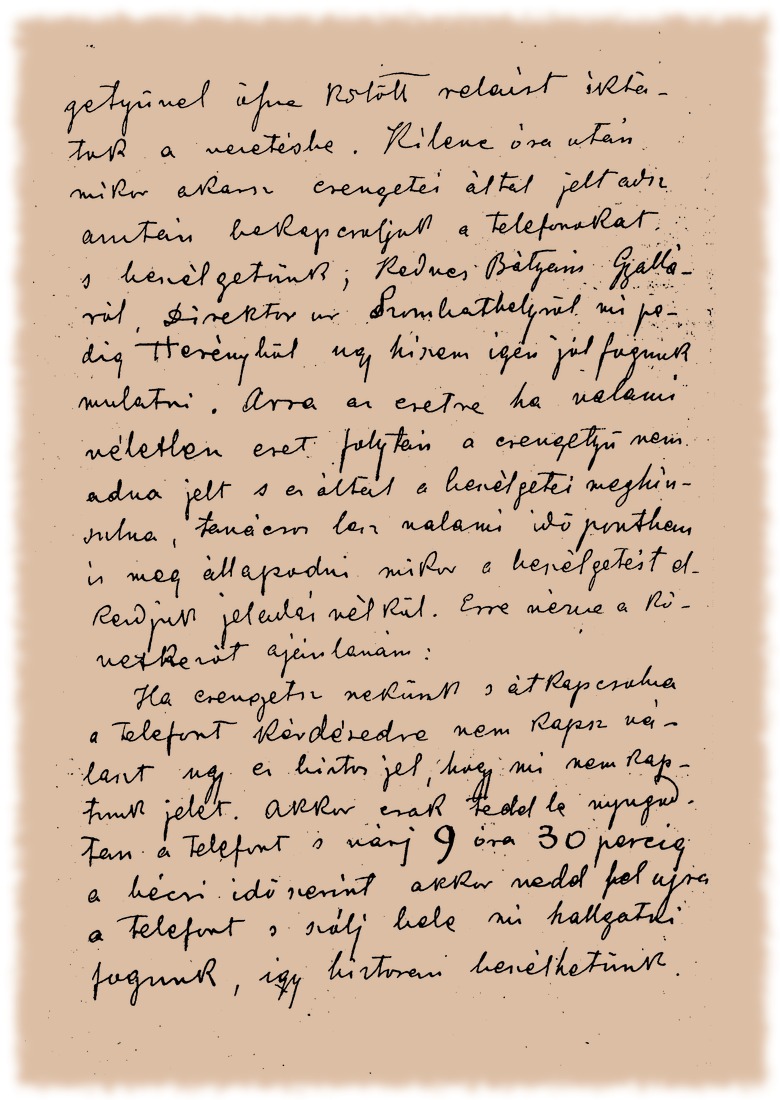 getyűvel össze kötött relaist ikta-
tok a vezetésbe. Kilenc óra után
mikor akarsz csengetés által jelt adsz
azután bekapcsoljuk a telefonokat.
s beszélgetünk; Kedves Bátyám Gyallá-
ról, Direktor úr Szombathelyről mi pe-
dig Herényből ugy hiszem igen jól fogunk
mulatni. Arra az esetre ha valami
véletlen eset folytán a csengetyü nem
adna jelt s ez által a beszélgetés meghiu-
sulna, tanácsos lesz valami idő pontban
is meg állapodni mikor a beszélgetést el-
kezdjük jeladás nélkül. Erre nézve a kö-
vetkezőt ajánlanám:
Ha csengetsz nekünk s átkapcsolva
a Telefont kérdésedre nem kapsz vá-
laszt ugy ez biztos jel, hogy mi nem kap-
tunk jelet. Akkor csak tedd le nyugod-
tan a Telefont s várj 9 óra 30 percig
a bécsi idő szerint akkor vedd fel ujra
a Telefont s szólj bele mi hallgatni
fogunk, így biztosan beszélhetünk.